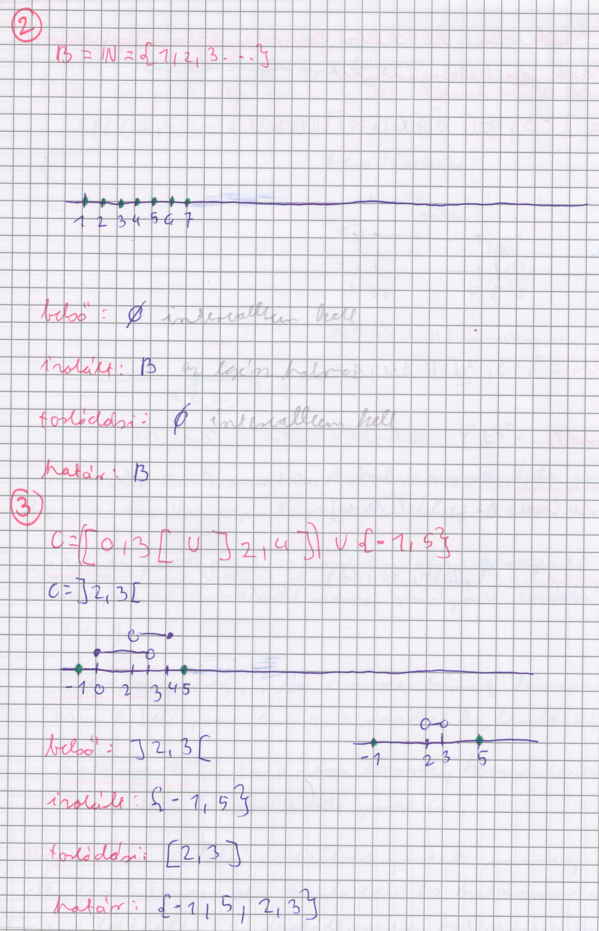 ②
B = ℕ = {1, 2, 3 ...}
1 2 3 4 5 6 7
belső: ∅ intervallum kell
izolált: B az egész halmaz
torlódási: ∅ intervallum kell
határ: B
③
C = ([0, 3[ ∪ ]2, 4]) ∪ {-1, 5}
C = ]2, 3[
-1 0 2 3 4 5
belső: ]2, 3[
-1 2 3 5
izolált: {-1, 5}
torlódási: [2, 3]
határ: {-1, 5, 2, 3}